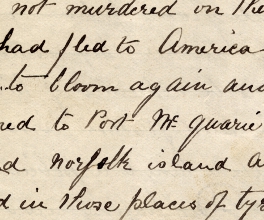 not murdered on the
had fled to America
to bloom again and
red to Port Mc quarie
d Norfolk island a
d in those places of tyr